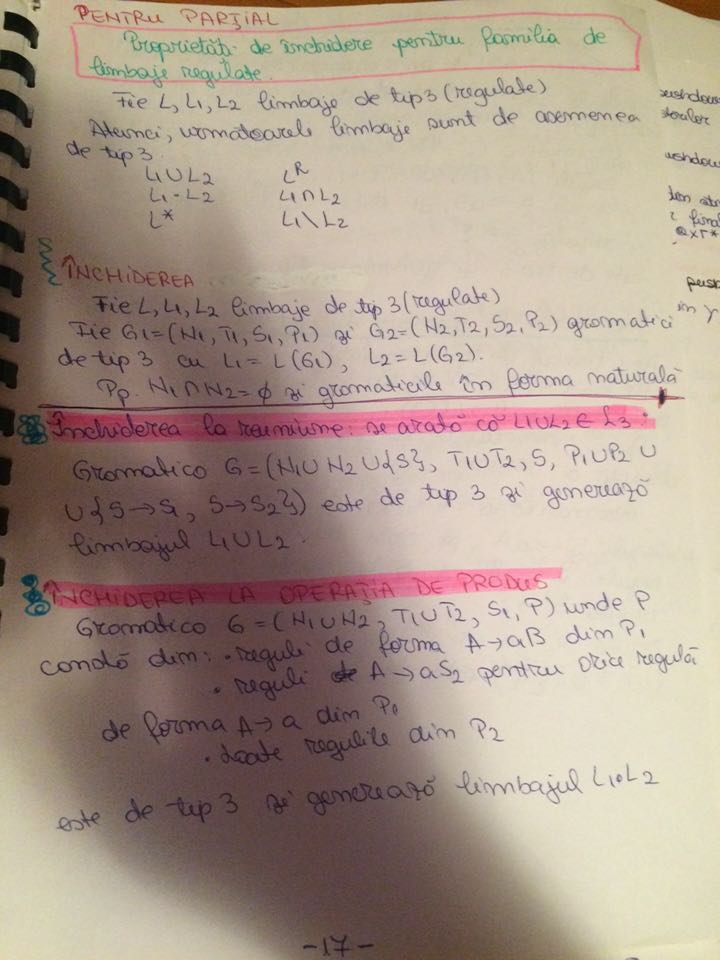 PENTRU PARȚIAL
Proprietăți de închidere pentru familia de
limbaje regulate.
Fie L, L1, L2 limbaje de tip 3 (regulate)
Atunci, următoarele limbaje sunt de asemenea
de tip 3.
L1∪L2 L^R
L1·L2 L1∩L2
L* L1\L2
ÎNCHIDEREA
Fie L, L1, L2 limbaje de tip 3 (regulate)
Fie G1=(N1, T1, S1, P1) și G2=(N2, T2, S2, P2) gramatici
de tip 3 cu L1 = L(G1), L2=L(G2).
Pp. N1∩N2=∅ și gramaticile în forma naturală
Închiderea la reuniune: se arată că L1∪L2 ∈ L3:
Gramatica G=(N1∪N2∪{S}, T1∪T2, S, P1∪P2 ∪
∪{S→S1, S→S2}) este de tip 3 și generează
limbajul L1∪L2.
ÎNCHIDEREA LA OPERAȚIA DE PRODUS
Gramatica G = (N1∪N2, T1∪T2, S1, P) unde P
constă din: · reguli de forma A→aB din P1
· reguli A→aS2 pentru orice regulă
de forma A→a din P1
· toate regulile din P2
este de tip 3 și generează limbajul L1•L2
-17-